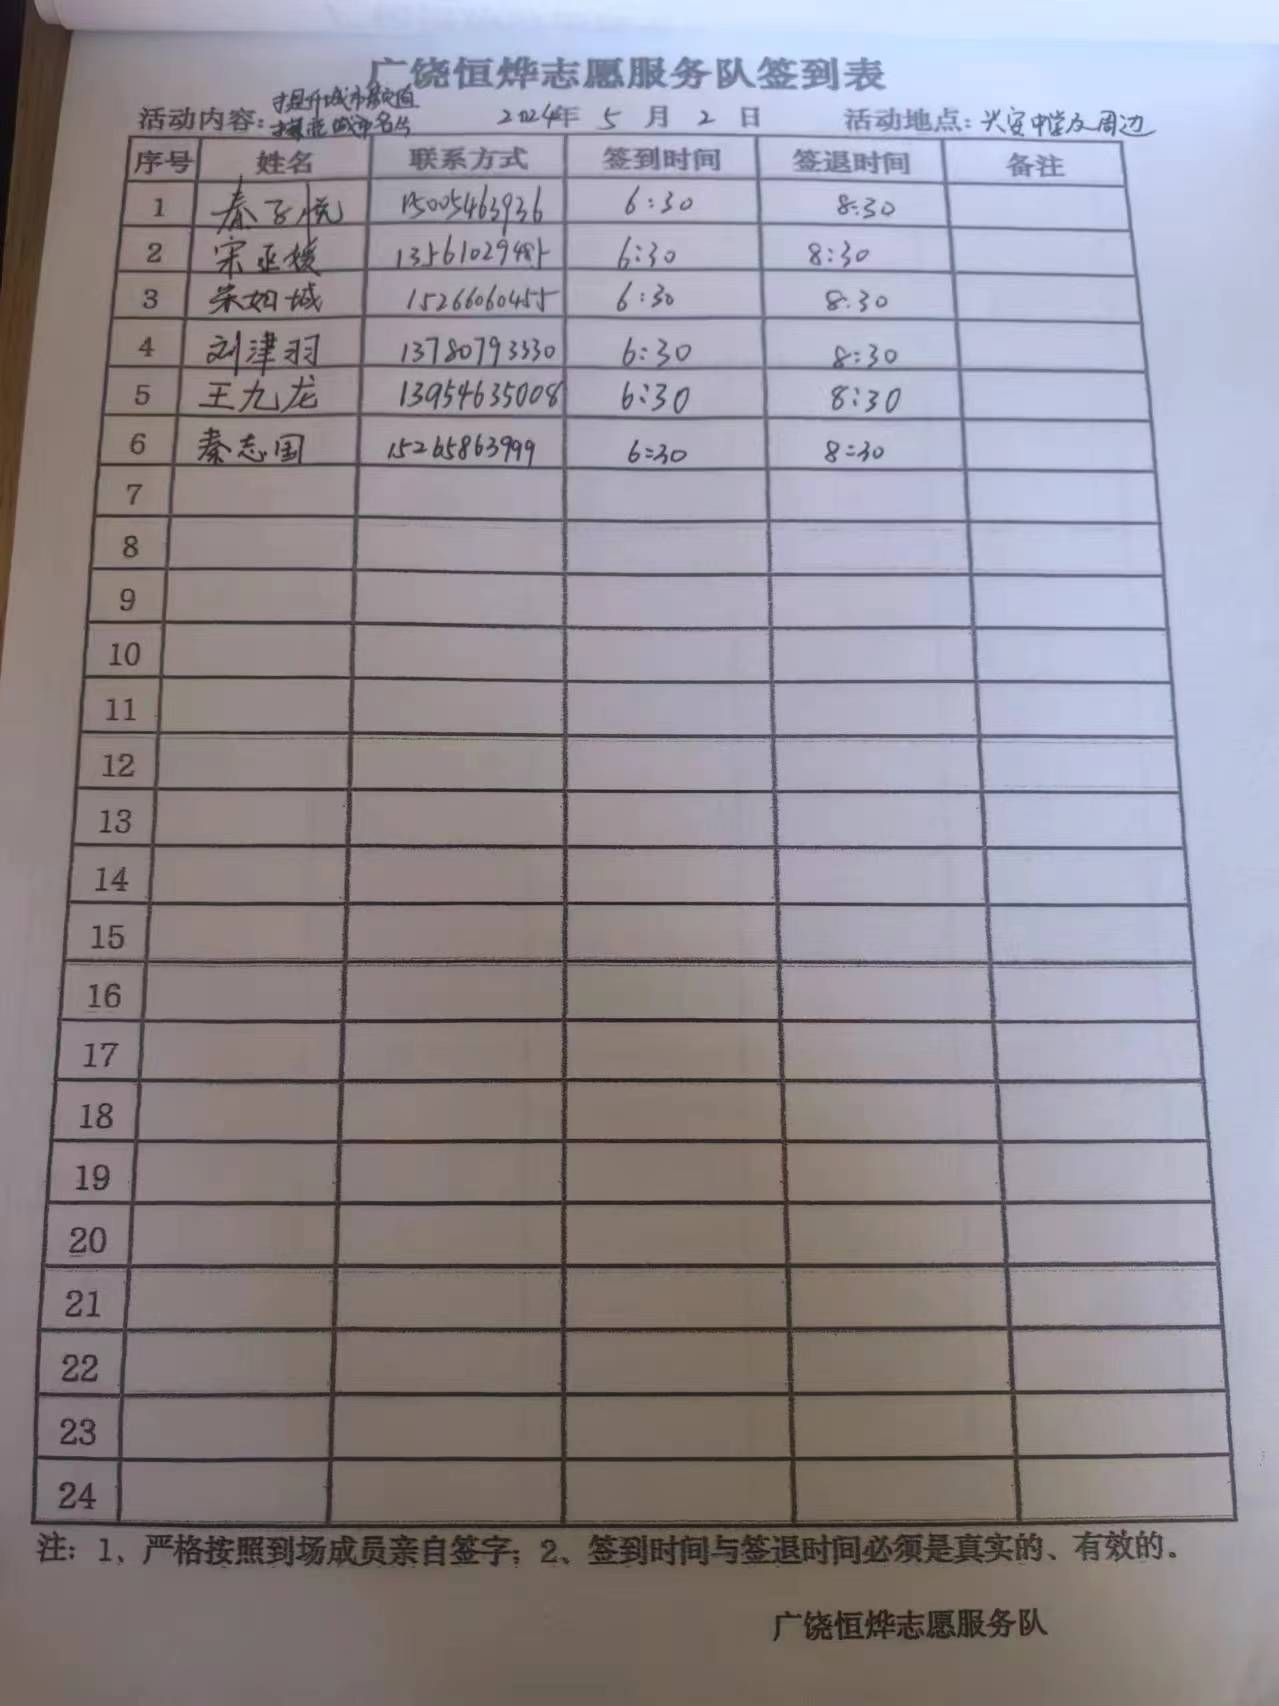 广饶恒烨志愿服务队签到表
活动内容: 提升城市颜值 城市名片 2024年 5 月 2 日 活动地点: 兴安中学及周边
序号 姓名 联系方式 签到时间 签退时间 备注
1 秦子悦 15005463936 6:30 8:30
2 宋亚媛 13561029485 6:30 8:30
3 荣如城 15266060455 6:30 8:30
4 刘津羽 13780793330 6:30 8:30
5 王九龙 13954635008 6:30 8:30
6 秦志国 15265863999 6:30 8:30
7
8
9
10
11
12
13
14
15
16
17
18
19
20
21
22
23
24
注: 1、严格按照到场成员亲自签字; 2、签到时间与签退时间必须是真实的、有效的。
广饶恒烨志愿服务队